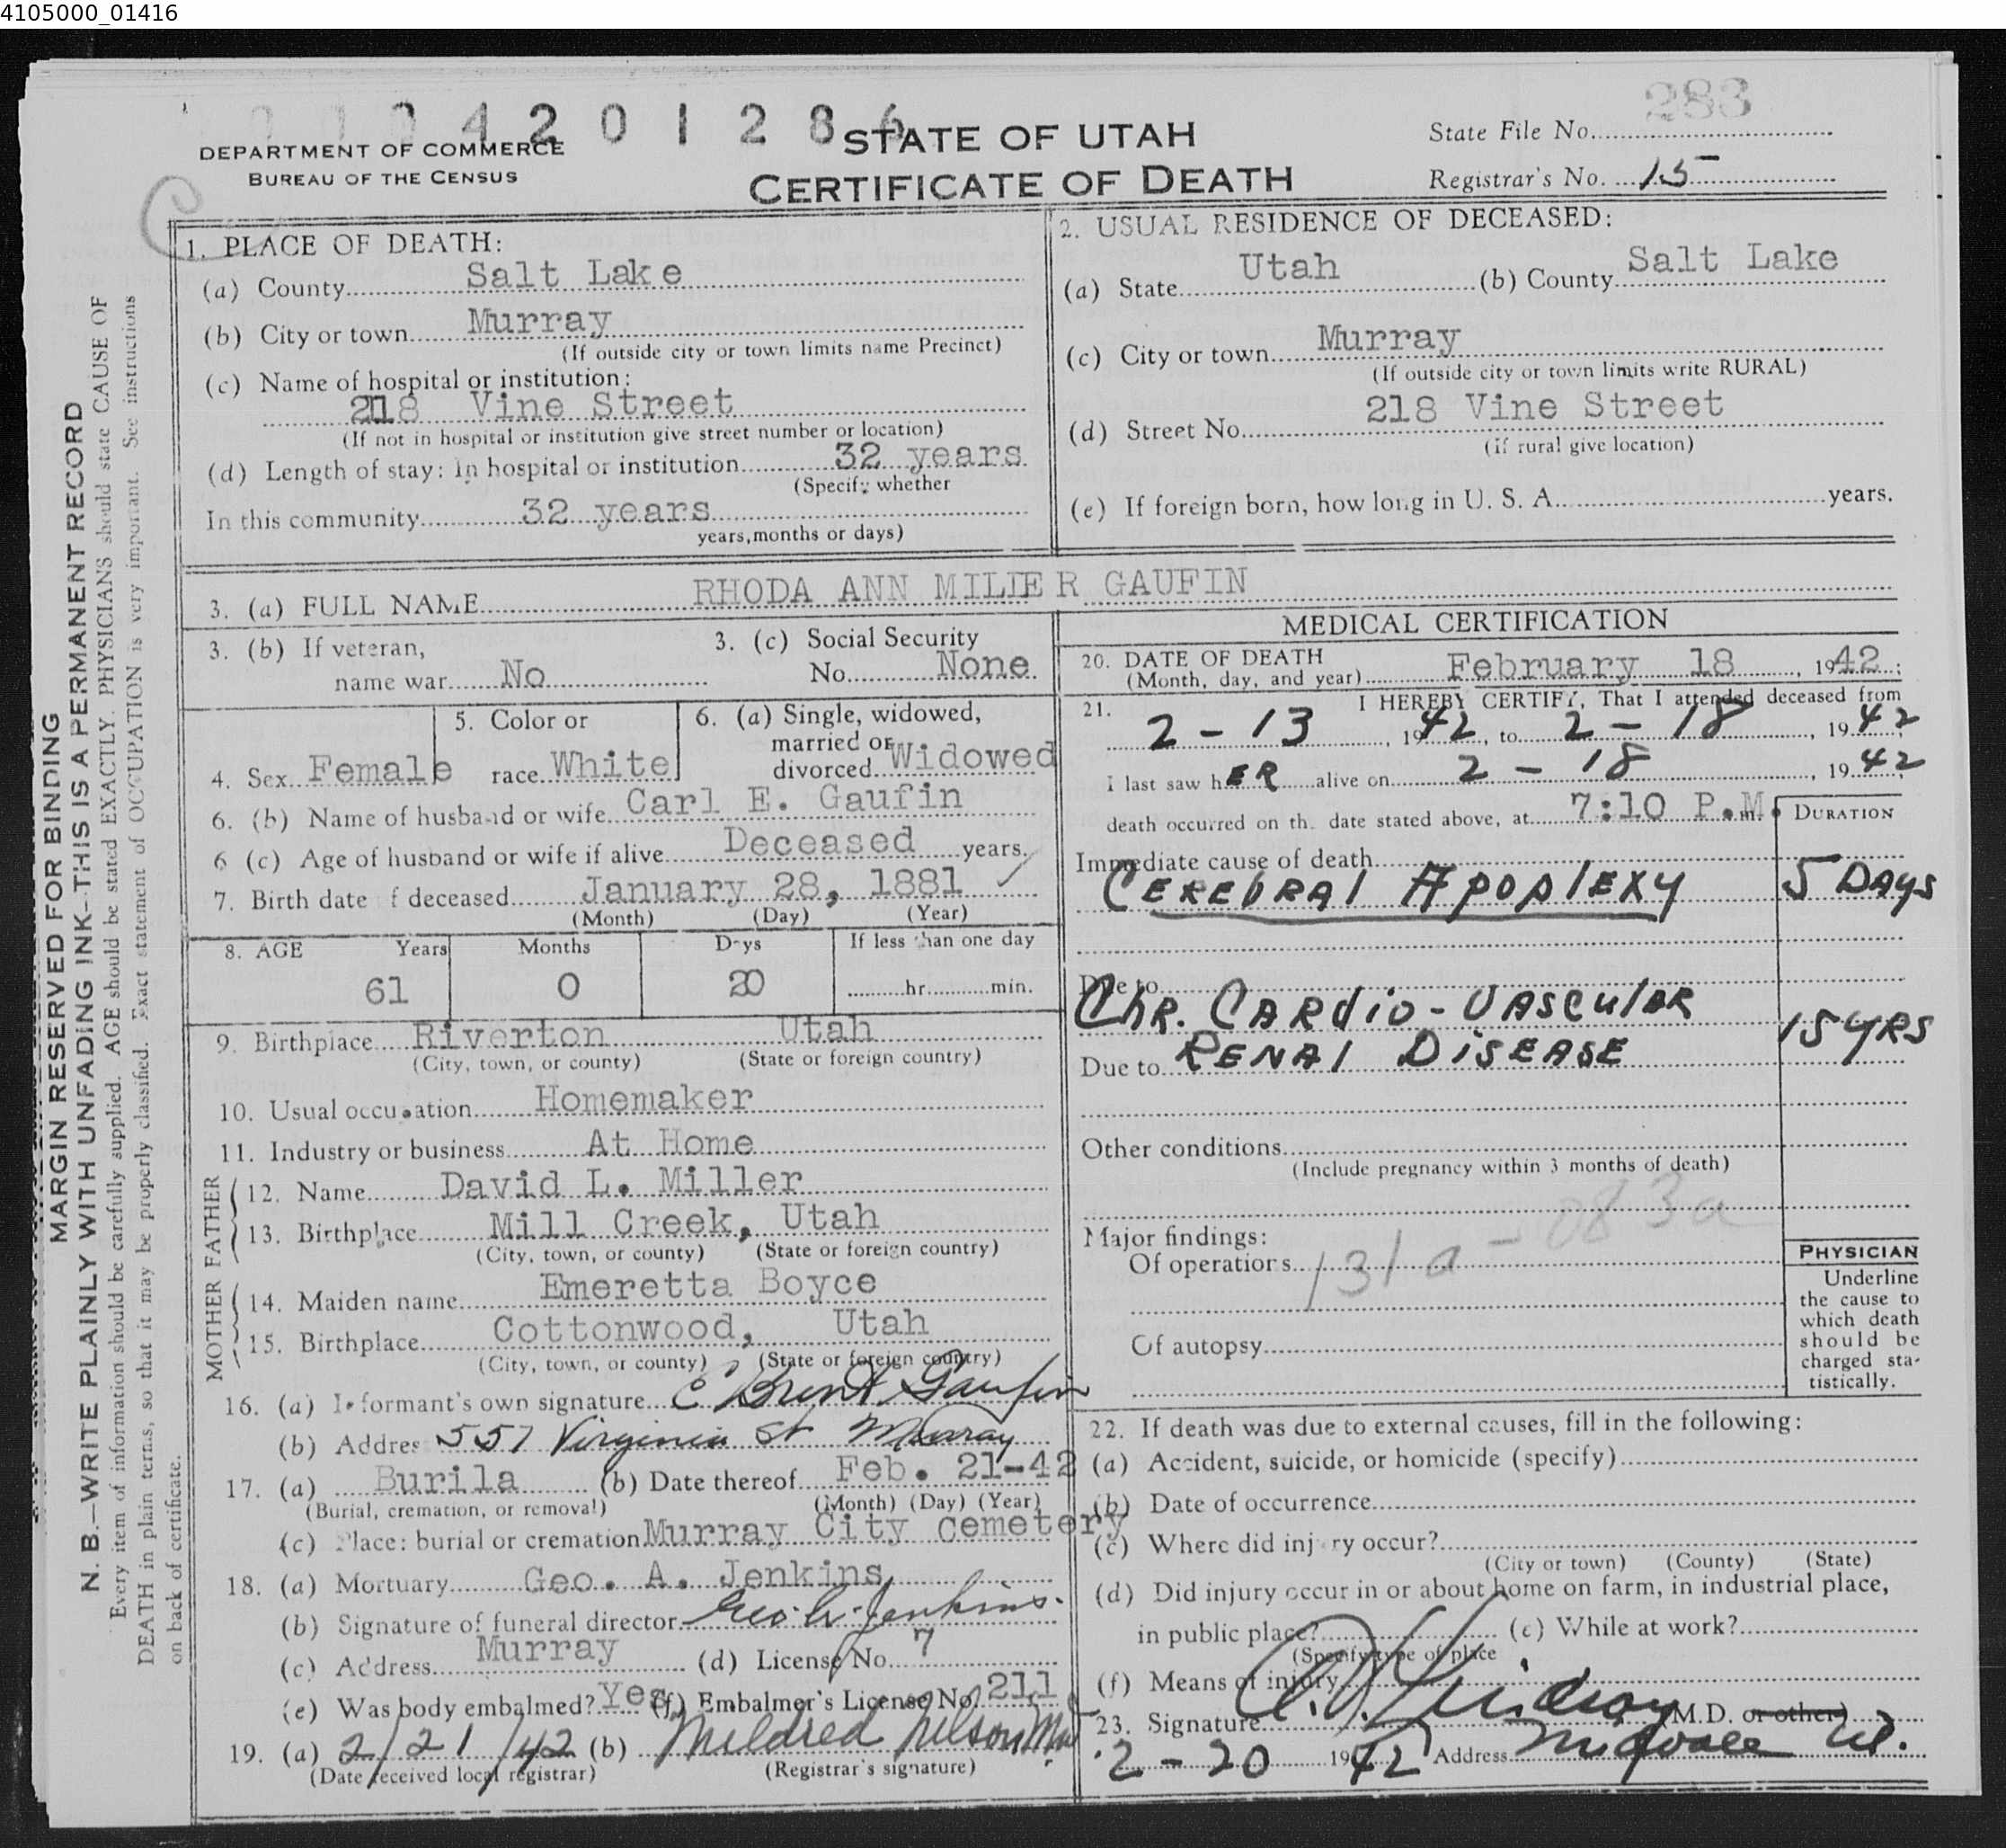 4105000_01416
4 2 0 1 2 8 6
283
DEPARTMENT OF COMMERCE
BUREAU OF THE CENSUS
STATE OF UTAH
CERTIFICATE OF DEATH
State File No.
Registrar's No. 15
MARGIN RESERVED FOR BINDING
N. B.—WRITE PLAINLY WITH UNFADING INK—THIS IS A PERMANENT RECORD
Every item of information should be carefully supplied. AGE should be stated EXACTLY. PHYSICIANS should state CAUSE OF
DEATH in plain terms, so that it may be properly classified. Exact statement of OCCUPATION is very important. See instructions
on back of certificate.
1. PLACE OF DEATH:
(a) County Salt Lake
(b) City or town Murray
(If outside city or town limits name Precinct)
(c) Name of hospital or institution:
218 Vine Street
(If not in hospital or institution give street number or location)
(d) Length of stay: In hospital or institution 32 years
(Specify whether
In this community 32 years
years, months or days)
2. USUAL RESIDENCE OF DECEASED:
(a) State Utah (b) County Salt Lake
(c) City or town Murray
(If outside city or town limits write RURAL)
(d) Street No. 218 Vine Street
(if rural give location)
(e) If foreign born, how long in U. S. A. years.
3. (a) FULL NAME RHODA ANN MILLER GAUFIN
3. (b) If veteran, name war No
3. (c) Social Security No. None
4. Sex Female
5. Color or race White
6. (a) Single, widowed, married or divorced Widowed
6. (b) Name of husband or wife Carl E. Gaufin
6 (c) Age of husband or wife if alive Deceased years.
7. Birth date of deceased January 28, 1881
(Month) (Day) (Year)
8. AGE Years Months Days If less than one day
61 0 20 hr. min.
9. Birthplace Riverton Utah
(City, town, or county) (State or foreign country)
10. Usual occupation Homemaker
11. Industry or business At Home
FATHER
12. Name David L. Miller
13. Birthplace Mill Creek, Utah
(City, town, or county) (State or foreign country)
MOTHER
14. Maiden name Emeretta Boyce
15. Birthplace Cottonwood, Utah
(City, town, or county) (State or foreign country)
16. (a) Informant's own signature E Brent Gaufin
(b) Address 557 Virginia St Murray
17. (a) Burila (b) Date thereof Feb. 21-42
(Burial, cremation, or removal) (Month) (Day) (Year)
(c) Place: burial or cremation Murray City Cemetery
18. (a) Mortuary Geo. A. Jenkins
(b) Signature of funeral director Geo A. Jenkins.
(c) Address Murray (d) License No. 7
(e) Was body embalmed? Yes (f) Embalmer's License No. 211
19. (a) 2/21/42 (b) Mildred Nelson
(Date received local registrar) (Registrar's signature)
MEDICAL CERTIFICATION
20. DATE OF DEATH
(Month, day, and year) February 18, 1942;
21. I HEREBY CERTIFY, That I attended deceased from
2 - 13, 1942, to 2 - 18, 1942
I last saw hER alive on 2 - 18, 1942
death occurred on the date stated above, at 7:10 P.M.
DURATION
Immediate cause of death
CEREBRAL APOPLEXY 5 DAYS
Due to
CHR. CARDIO-VASCULAR
Due to RENAL DISEASE 15 YRS
Other conditions
(Include pregnancy within 3 months of death)
Major findings:
Of operations 131a - 083a
Of autopsy
PHYSICIAN
Underline
the cause to
which death
should be
charged sta-
tistically.
22. If death was due to external causes, fill in the following:
(a) Accident, suicide, or homicide (specify)
(b) Date of occurrence
(c) Where did injury occur?
(City or town) (County) (State)
(d) Did injury occur in or about home on farm, in industrial place,
in public place? (e) While at work?
(Specify type of place
(f) Means of injury
23. Signature Lindsay M.D. or other)
2 - 20 1942 Address Midvale Ut.